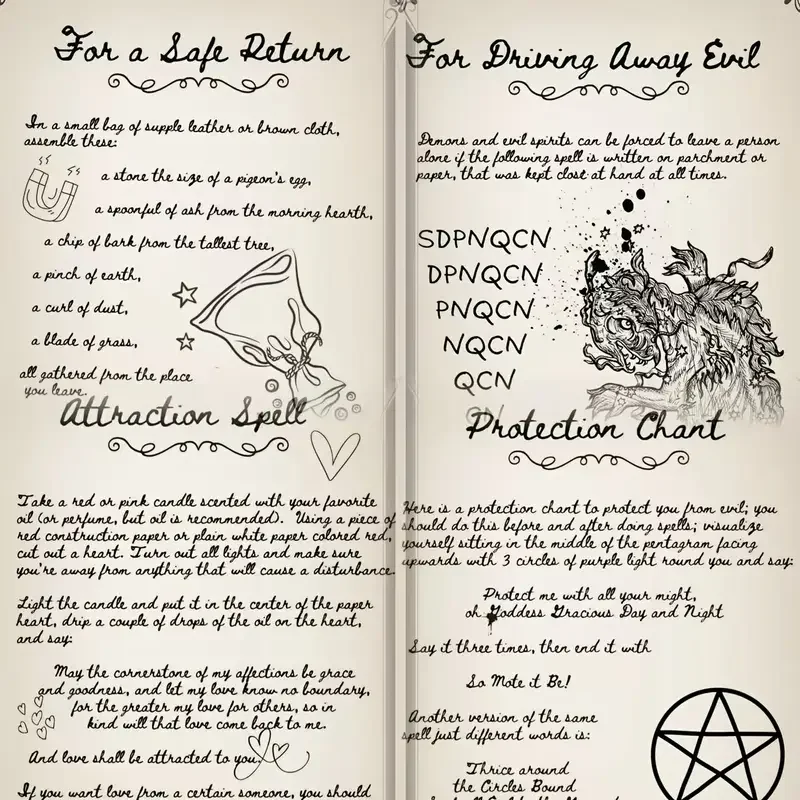 For a Safe Return
In a small bag of supple leather or brown cloth,
assemble these:
a stone the size of a pigeon's egg,
a spoonful of ash from the morning hearth,
a chip of bark from the tallest tree,
a pinch of earth,
a curl of dust,
a blade of grass,
all gathered from the place
you leave.
Attraction Spell
Take a red or pink candle scented with your favorite
oil (or perfume, but oil is recommended). Using a piece of
red construction paper or plain white paper colored red,
cut out a heart. Turn out all lights and make sure
you're away from anything that will cause a disturbance.
Light the candle and put it in the center of the paper
heart, drip a couple of drops of the oil on the heart,
and say:
May the cornerstone of my affections be grace
and goodness, and let my love know no boundary,
for the greater my love for others, so in
kind will that love come back to me.
And love shall be attracted to you.
If you want love from a certain someone, you should
For Driving Away Evil
Demons and evil spirits can be forced to leave a person
alone if the following spell is written on parchment or
paper, that was kept close at hand at all times.
SDPNQCN
DPNQCN
PNQCN
NQCN
QCN
CN
Protection Chant
Here is a protection chant to protect you from evil; you
should do this before and after doing spells; visualize
yourself sitting in the middle of the pentagram facing
upwards with 3 circles of purple light round you and say:
Protect me with all your might,
oh Goddess Gracious Day and Night
Say it three times, then end it with
So Mote it Be!
Another version of the same
spell just different words is:
Thrice around
the Circles Bound